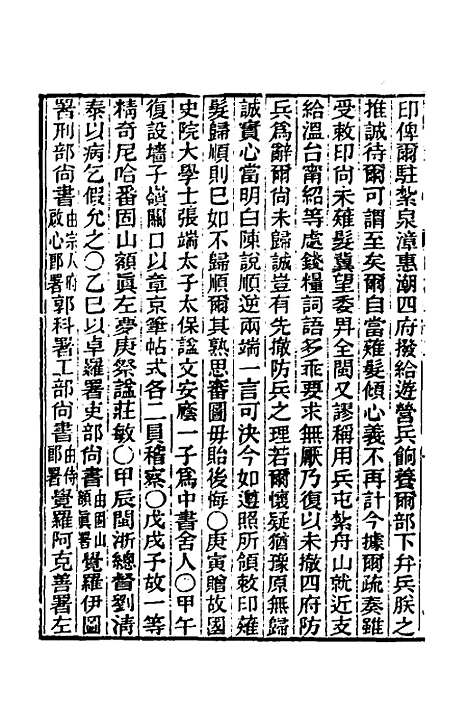 印俾爾駐紮泉漳惠潮四府撥給遊營兵餉養爾部下弁兵朕之
推誠待爾可謂至矣爾自當薙髮傾心義不再計今據爾疏奏雖
受敕印尚未薙髮冀望委畀全閩又謬稱用兵屯紮舟山就近支
給溫台甯紹等處錢糧詞語多乖要求無厭乃復以未撤四府防
兵爲辭爾尚未歸誠豈有先撤防兵之理若爾懷疑猶豫原無歸
誠實心當明白陳說順逆兩端一言可決今如遵照所頒敕印薙
髮歸順則已如不歸順爾其熟思審圖毋貽後悔○庚寅贈故國
史院大學士張端太子太保諡文安廕一子爲中書舍人○甲午
復設墻子嶺關口以章京筆帖式各二員稽察○戊戌予故一等
精奇尼哈番固山額眞左夢庚祭諡莊敏○甲辰閩浙總督劉淸
泰以病乞假允之○乙巳以卓羅署吏部尚書由固山額眞署覺羅伊圖
署刑部尚書由宗人府啟心郎署郭科署工部尚書由侍郎署覺羅阿克善署左